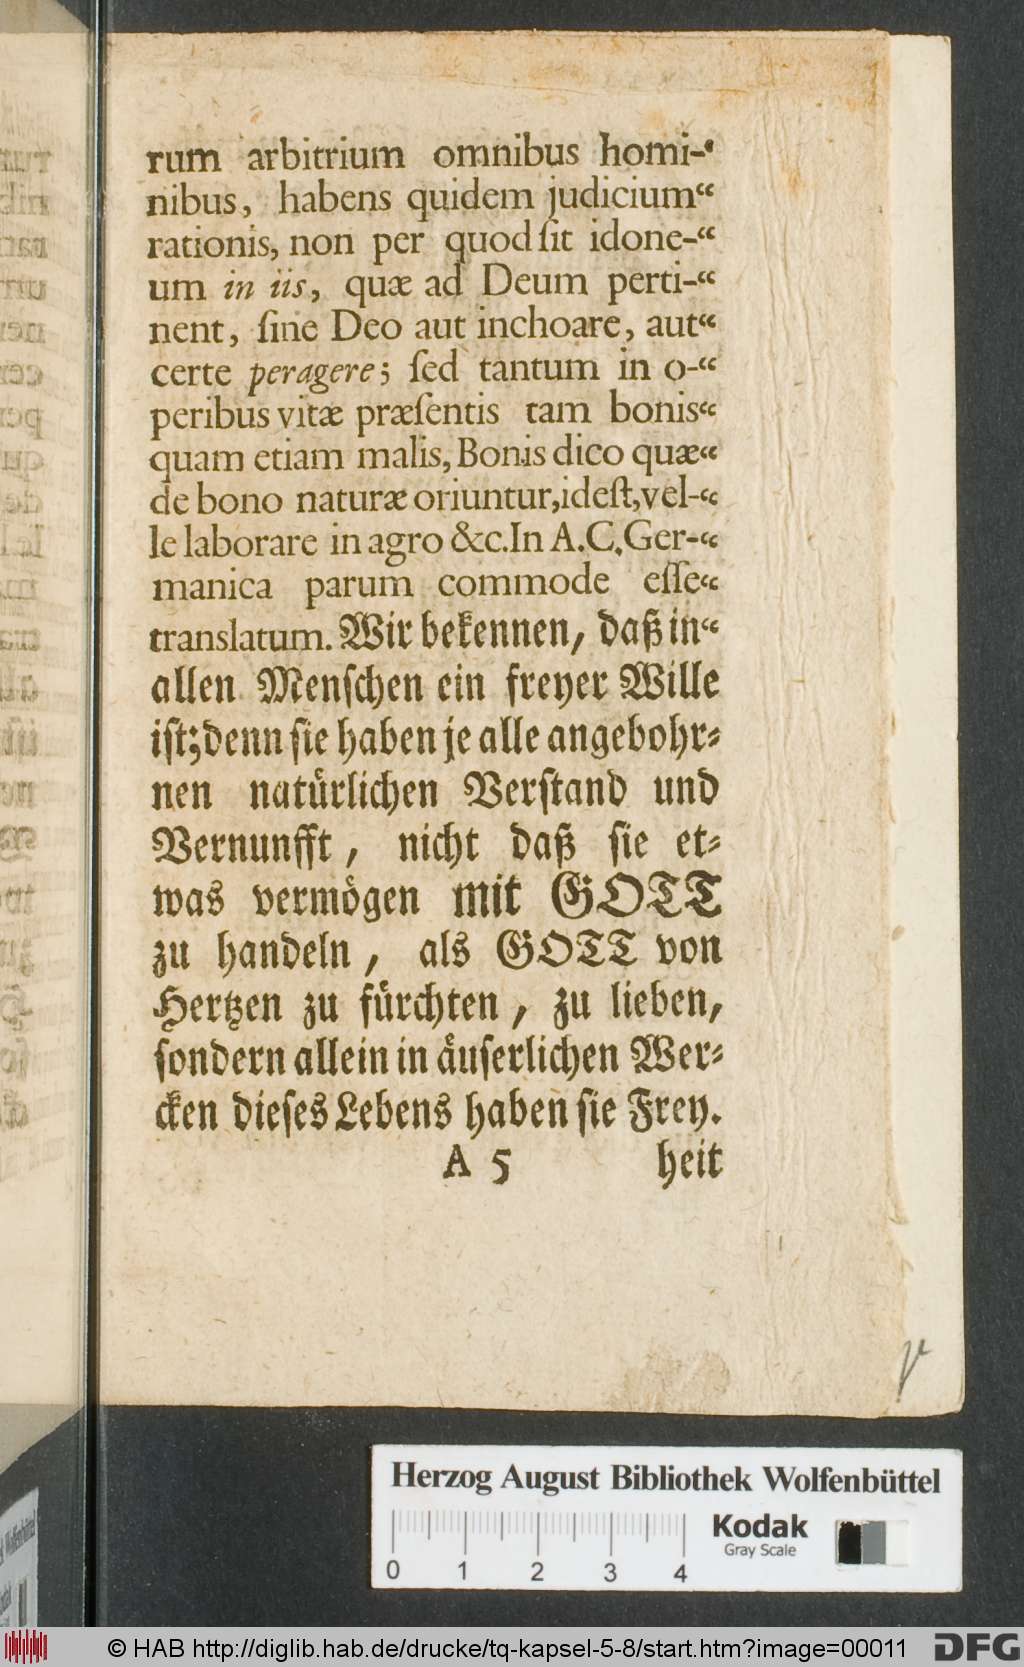 rum arbitrium omnibus homi-“
nibus, habens quidem judicium“
rationis, non per quod ſit idone-“
um in iis, quæ ad Deum perti-“
nent, ſine Deo aut inchoare, aut“
certe peragere; ſed tantum in o-“
peribus vitæ præſentis tam bonis“
quam etiam malis, Bonis dico quæ“
de bono naturæ oriuntur, ideſt, vel-“
le laborare in agro &c. In A. C. Ger-“
manica parum commode eſſe“
translatum. Wir bekennen, daß in“
allen Menſchen ein freyer Wille
iſt; denn ſie haben je alle angebohr⸗
nen natürlichen Verſtand und
Vernunfft, nicht daß ſie et⸗
was vermögen mit GOTT
zu handeln, als GOTT von
Hertzen zu fürchten, zu lieben,
ſondern allein in äuſerlichen Wer⸗
cken dieſes Lebens haben ſie Frey.
A 5 heit
Herzog August Bibliothek Wolfenbüttel
Kodak
Gray Scale
0 1 2 3 4
© HAB http://diglib.hab.de/drucke/tq-kapsel-5-8/start.htm?image=00011
DFG